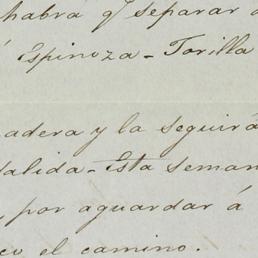 habra q' separar
Espinoza - Torilla
adera y la seguirá
salida - Esta seman
, por aguardar á
co el camino.